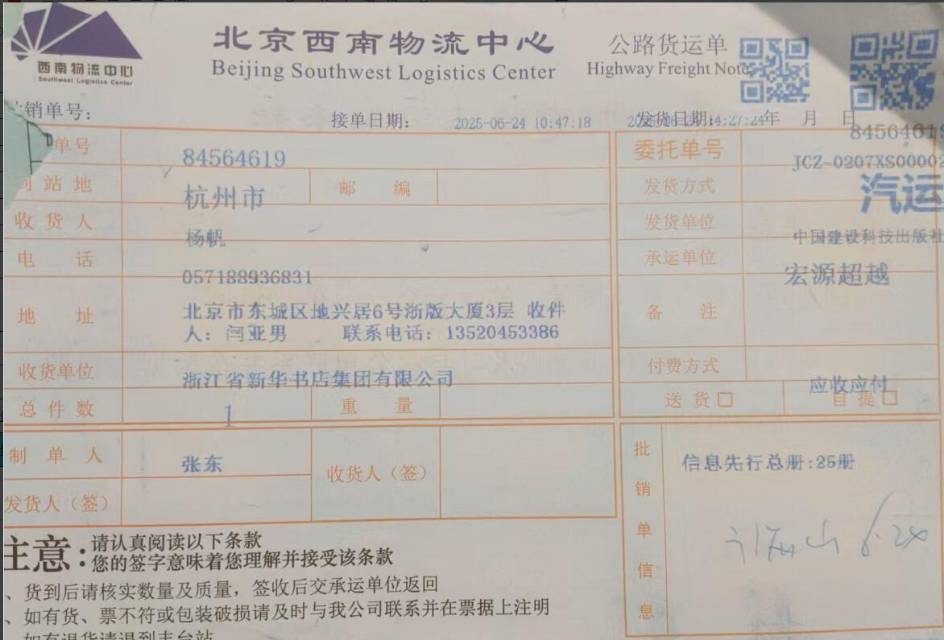 西南物流中心
Southwest Logistics Center
北京西南物流中心
Beijing Southwest Logistics Center
公路货运单
Highway Freight Note
销单号：
接单日期： 2025-06-24 10:47:18
发货日期： 年 月 日
单号 84564619
委托单号 JCZ-0207XS00002
站地 杭州市 邮 编
发货方式 汽运
收货人 杨帆
发货单位 中国建设科技出版社
电 话 057188936831
承运单位 宏源超越
地 址 北京市东城区地兴居6号浙版大厦3层 收件
人：闫亚男 联系电话：13520453386
备 注
收货单位 浙江省新华书店集团有限公司
付费方式 应收应付
总件数 1 重 量
送货□ 自提□
制单人 张东 收货人（签）
发货人（签）
批销单信息 信息先行总册:25册
6.24
注意：请认真阅读以下条款
您的签字意味着您理解并接受该条款
、货到后请核实数量及质量，签收后交承运单位返回
、如有货、票不符或包装破损请及时与我公司联系并在票据上注明
如有退货请退到丰台站